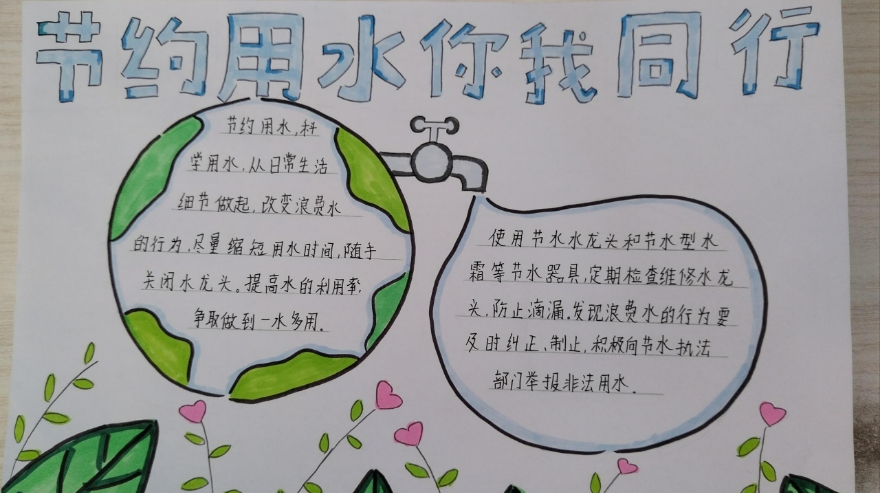 节约用水你我同行
节约用水,科
学用水,从日常生活
细节做起,改变浪费水
的行为,尽量缩短用水时间,随手
关闭水龙头。提高水的利用率,
争取做到一水多用。
使用节水水龙头和节水型水
霜等节水器具,定期检查维修水龙
头,防止滴漏。发现浪费水的行为要
及时纠正、制止,积极向节水执法
部门举报非法用水.